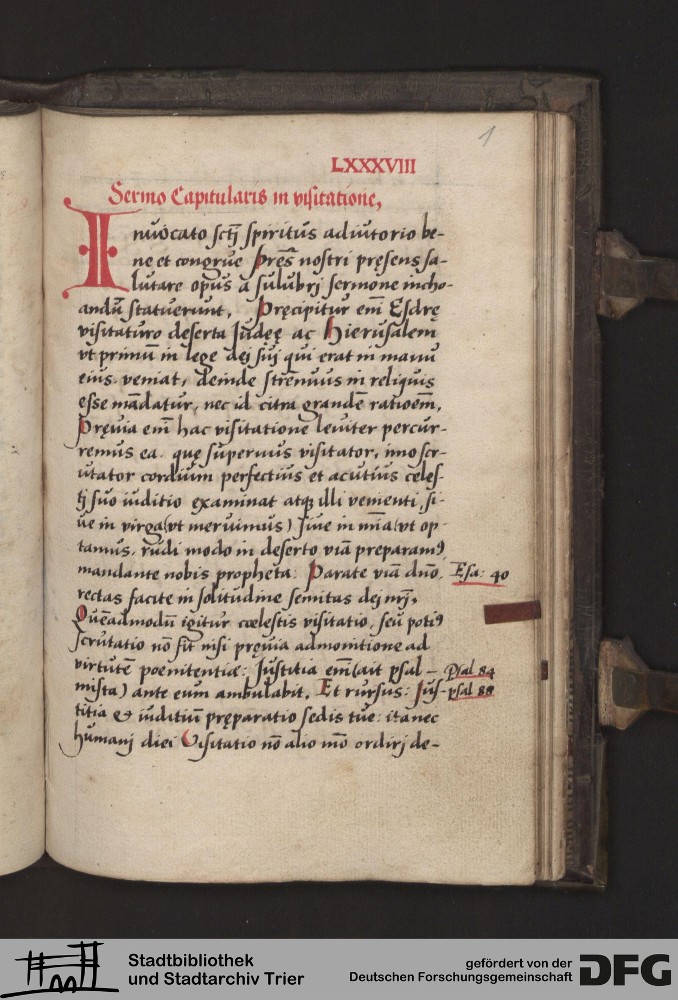 1
LXXXVIII
Sermo Capitularis in visitatione,
Inuocato sctj spiritus adiutorio be-
ne et congrue pres nostri pręsens sa-
lutare opus a salubrj sermone incho-
andū statuerunt, Pręcipitur em̄ Esdrę
visitaturo deserta Iudeę ac Hierusalem
vt primū in lege dej suj qui erat in manu
eius veniat, deinde strenuus in reliquis
esse mādatur, nec id citra grandē ratioēm,
Pręuia em̄ hac visitatione leuiter percur-
remus ea quę supernus visitator, imo scr-
utator cordium perfectius et acutius celes-
tj suo iuditio examinat atqꝫ illi venienti, si-
ue in virga (vt meruimus) siue in mīa (vt op-
tamus, rudi modo in deserto viā preparamꝰ,
mandante nobis propheta: Parate viā dnō, Esa: 40
rectas facite in solitudine semitas dej nrj,
Quēadmodū igitur cœlestis visitatio, seu potiꝰ
scrutatio nō fit nisi pręuia admonitione ad
virtutē poenitentiæ: Iustitia em̄ (ait psal- Psal 84
mista) ante eum ambulabit, Et rursus: Jus- psal 88
titia & iuditiū pręparatio sedis tuę: ita nec
humanj diei Visitatio nō alio mō ordirj de-
Stadtbibliothek
und Stadtarchiv Trier
gefördert von der
Deutschen Forschungsgemeinschaft
DFG